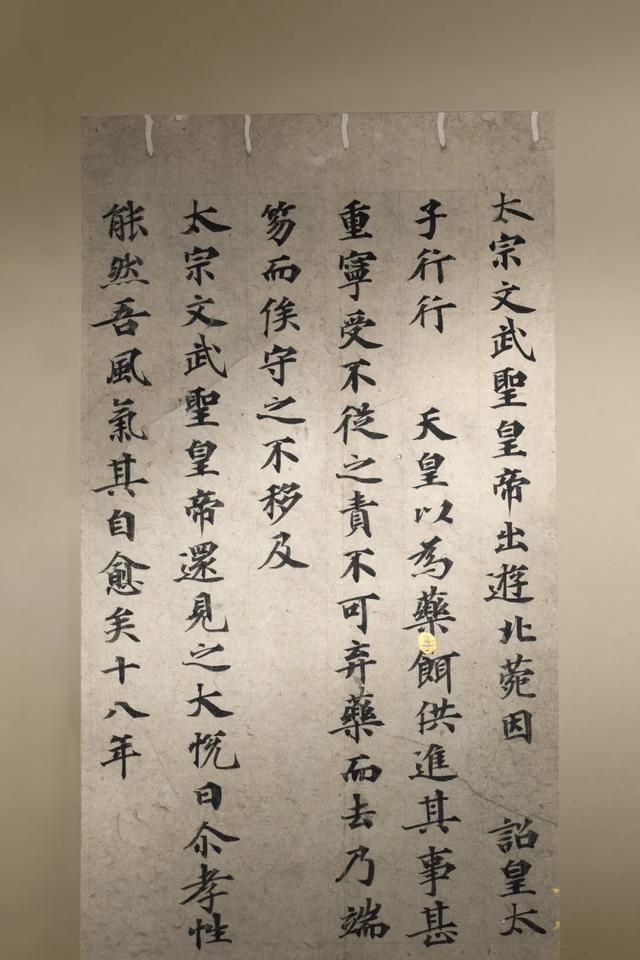 太宗文武聖皇帝出遊北菀因 詔皇太
子行行 天皇以為藥餌供進其事甚
重寧受不從之責不可弃藥而去乃端
笏而俟守之不移及
太宗文武聖皇帝還見之大恱曰尒孝性
能然吾風氣其自愈矣十八年